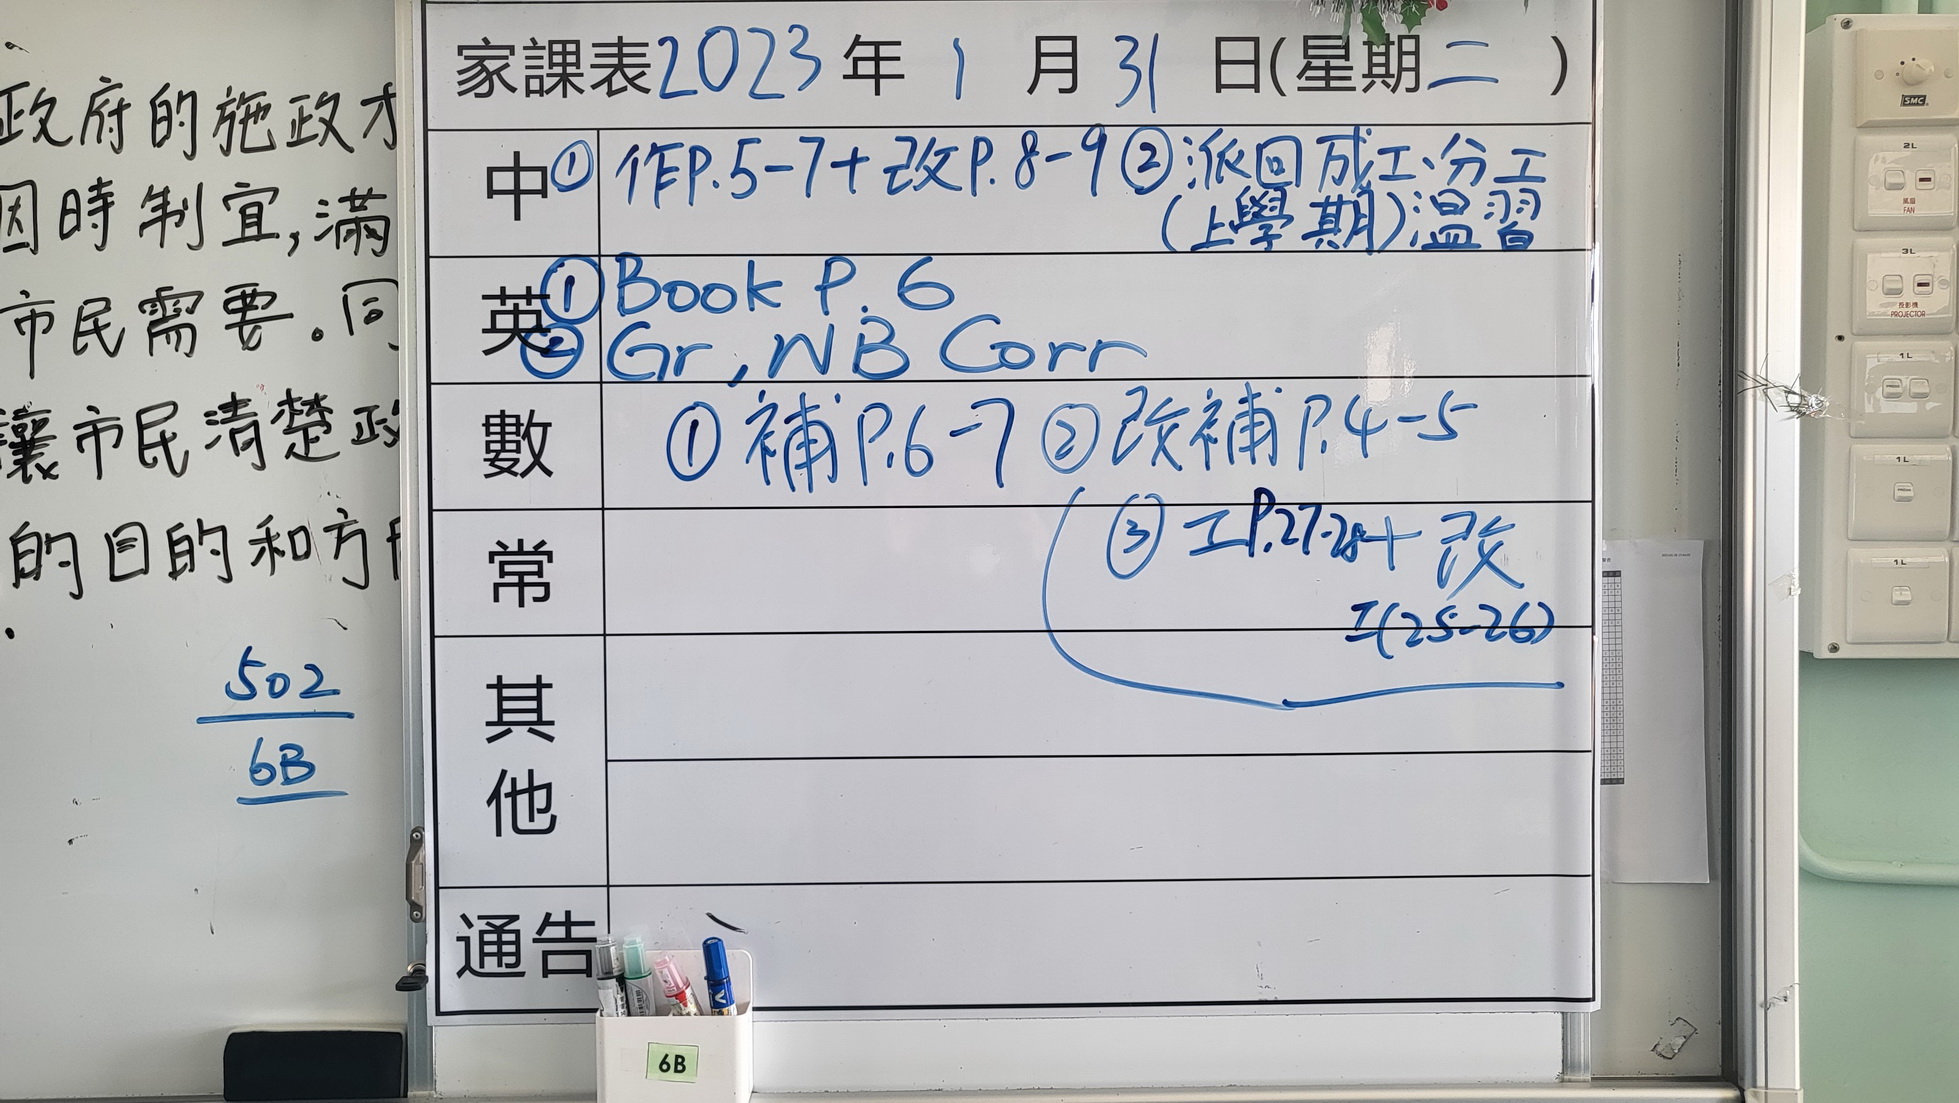 政府的施政才
因時制宜,滿
市民需要。同
讓市民清楚政
的目的和方
502
6B
家課表2023年 1 月 31 日(星期二)
中 ① 作P.5-7+改P.8-9 ② 派回成工、分工
(上學期)溫習
英 ① Book P.6
② Gr, NB Corr
數 ① 補P.6-7 ② 改補P.4-5
常 ③ 工P.27-28+改
工(25-26)
其他
通告
6B
SMC
2L
風扇
FAN
3L
投影機
PROJECTOR
1L
1L
1L